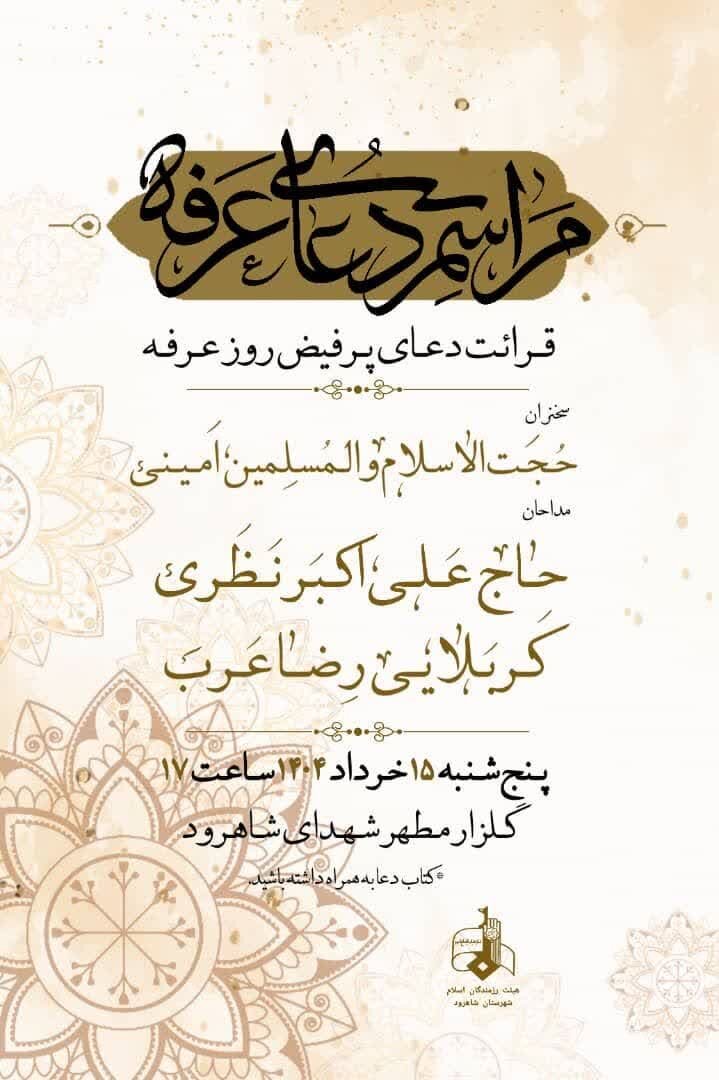 مراسم دعای عرفه
قرائت دعای پرفیض روز عرفه
سخنران
حُجَت الاسلام والمُسلِمین اَمینی
مداحان
حاج عَلی اکبَر نَظَری
کَربَلایی رِضا عَرَب
پنج‌شنبه ۱۵ خرداد ۱۴۰۴ ساعت ۱۷
گلزار مطهر شهدای شاهرود
*کتاب دعا به همراه داشته باشید.
هیئت رزمندگان اسلام
شهرستان شاهرود